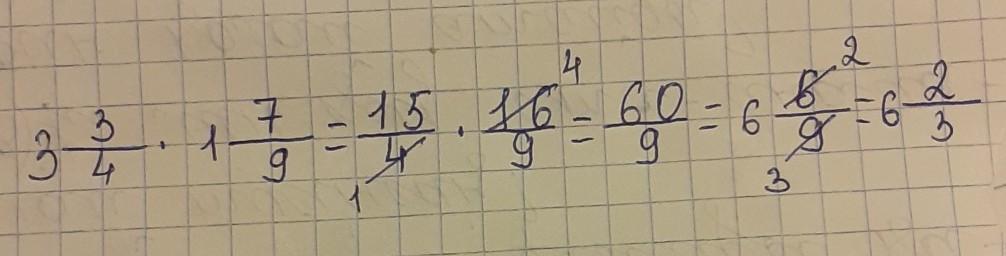 3 3/4 · 1 7/9 = 15/4 1 · 16/9 4 = 60/9 = 6 6/9 2 3 = 6 2/3